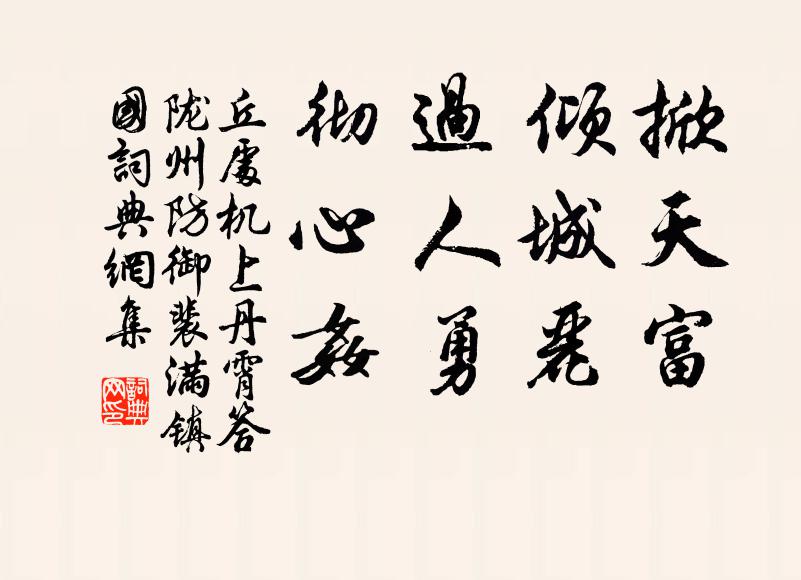 掀天富
傾城麗
過人勇
彻心姦
丘處机上丹霄答
陇州防御裴满镇
國詞典網集
詞典
网印